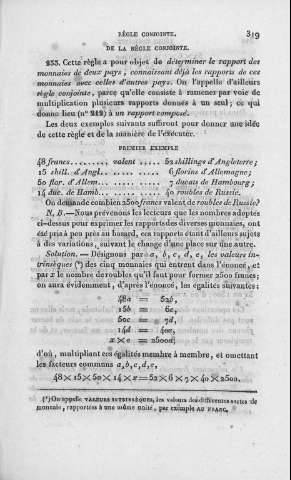 RÈGLE CONJOINTE. 319
DE LA RÈGLE CONJOINTE.
233. Cette règle a pour objet de déterminer le rapport des
monnaies de deux pays, connaissant déjà les rapports de ces
monnaies avec celles d'autres pays. On l'appelle d'ailleurs
règle conjointe, parce qu'elle consiste à ramener par voie de
multiplication plusieurs rapports donnés à un seul; ce qui
donne lieu (n° 212) à un rapport composé.
Les deux exemples suivants suffiront pour donner une idée
de cette règle et de la manière de l'exécuter.
PREMIER EXEMPLE
48 francs......... valent ..... 52 shillings d'Angleterre;
15 shill. d'Angl... .. ..... 6 florins d'Allemagne;
50 flor. d'Allem... .. ..... 7 ducats de Hambourg;
14 duc. de Hamb.... .. ..... 40 roubles de Russie.
On demande combien 2500 francs valent de roubles de Russie?
N. B.—Nous prévenons les lecteurs que les nombres adoptés
ci-dessus pour exprimer les rapports des diverses monnaies, ont
été pris à peu près au hasard, ces rapports étant d'ailleurs sujets
à des variations, suivant le change d'une place sur une autre.
Solution. — Désignons par a, b, c, d, e, les valeurs in-
trinsèques (*) des cinq monnaies qui entrent dans l'énoncé, et
par x le nombre de roubles qu'il faut pour former 2500 francs;
on aura évidemment, d'après l'énoncé, les égalités suivantes:
48a = 52b,
15b = 6c,
50c = 7d,
14d = 40e,
x × e = 2500a;
d'où, multipliant ces égalités membre à membre, et omettant
les facteurs communs a, b, c, d, e,
48 × 15 × 50 × 14 × x = 52 × 6 × 7 × 40 × 2500.
(*) On appelle VALEURS INTRINSÈQUES, les valeurs des différentes sortes de
monnaie, rapportées à une même unité, par exemple AU FRANC,